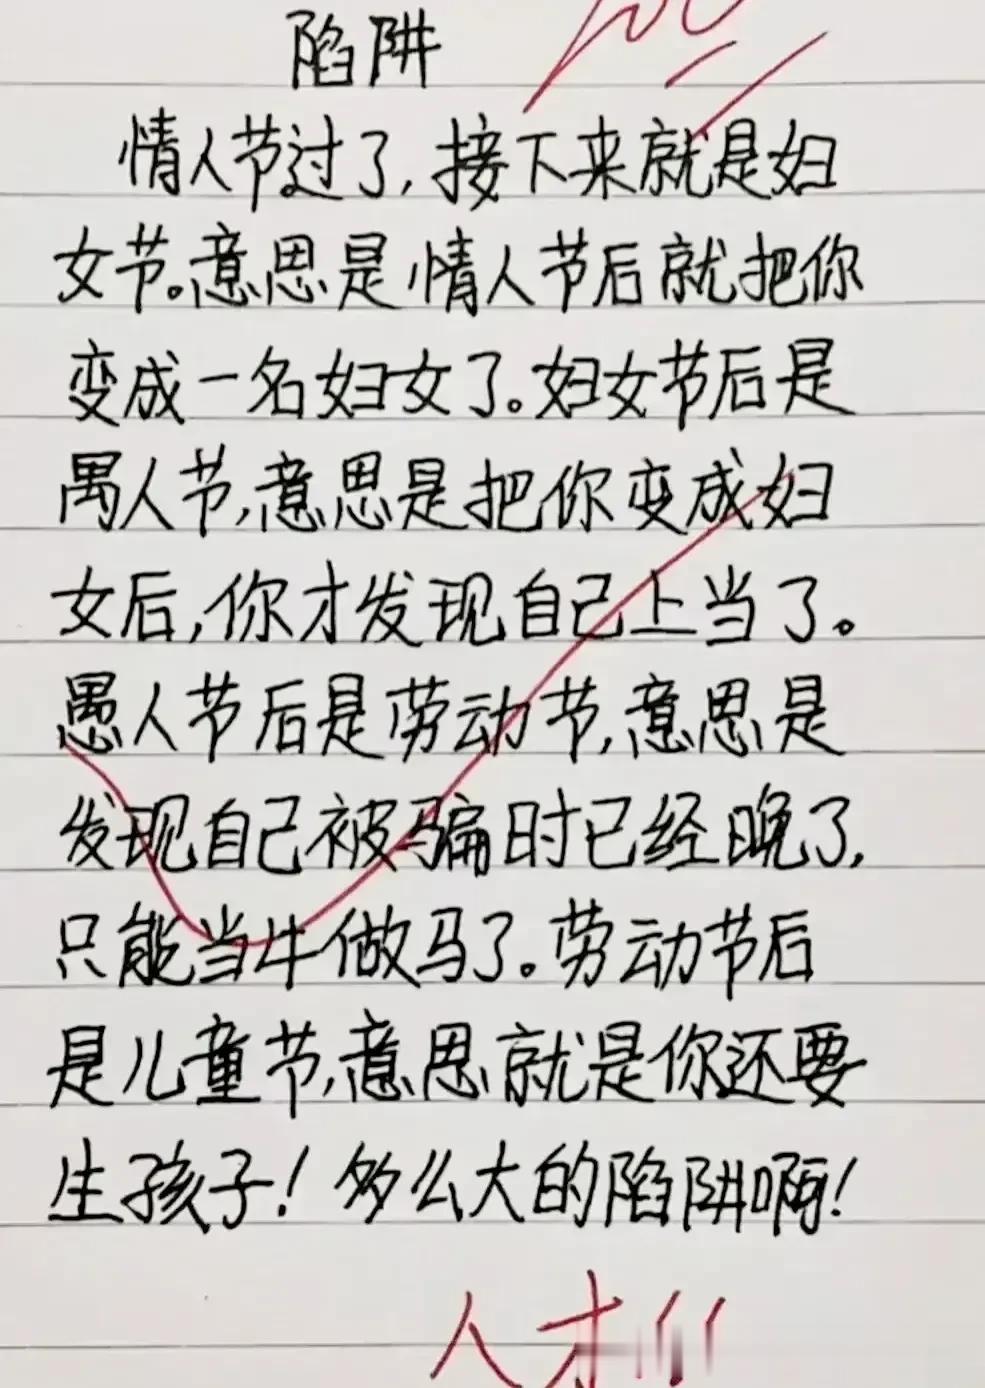 陷阱
100
情人节过了,接下来就是妇
女节。意思是情人节后就把你
变成一名妇女了。妇女节后是
愚人节,意思是把你变成妇
女后,你才发现自己上当了。
愚人节后是劳动节,意思是
发现自己被骗时已经晚了,
只能当牛做马了。劳动节后
是儿童节,意思就是你还要
生孩子!多么大的陷阱啊!
人才!!